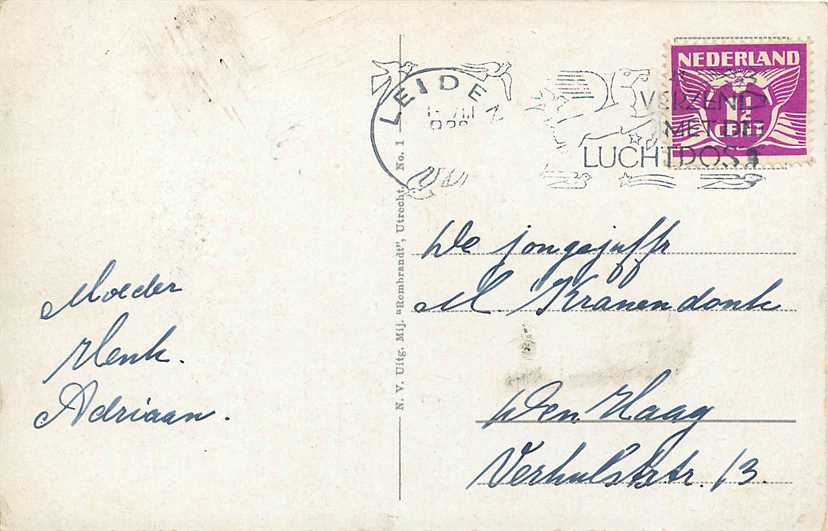 LEIDEN
VERZEND
MET DE
LUCHTPOST
NEDERLAND
1½
CENT
Moeder
Henk.
Adriaan.
N. V. Uitg. Mij. "Rembrandt", Utrecht. No. 1
De jongejuffr
M. Kranendonk
Den Haag
Verhulststr. 13.